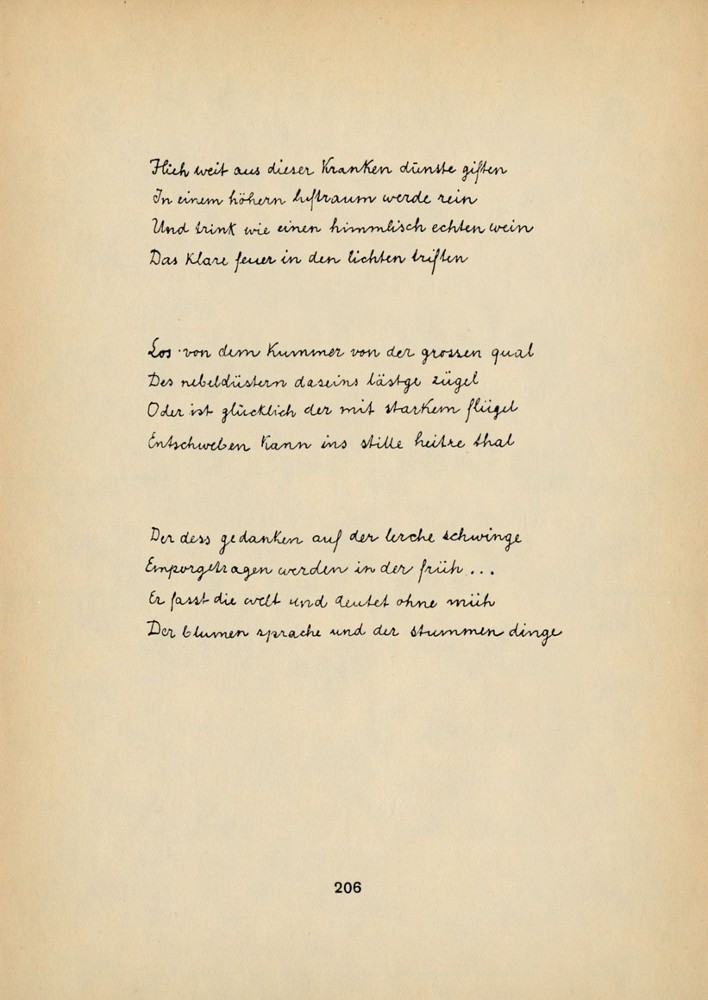 Flieh weit aus dieser Kranken dünste giften
In einem höhern luftraum werde rein
Und trink wie einen himmlisch echten wein
Das Klare feuer in den lichten triften
Los · von dem Kummer von der grossen qual
Des nebeldüstern daseins lästge zügel
Oder ist glücklich der mit starkem flügel
Entschweben Kann ins stille heitre thal
Der dess gedanken auf der lerche schwinge
Emporgetragen werden in der früh ...
Er fasst die welt und deutet ohne müh
Der blumen sprache und der stummen dinge
206